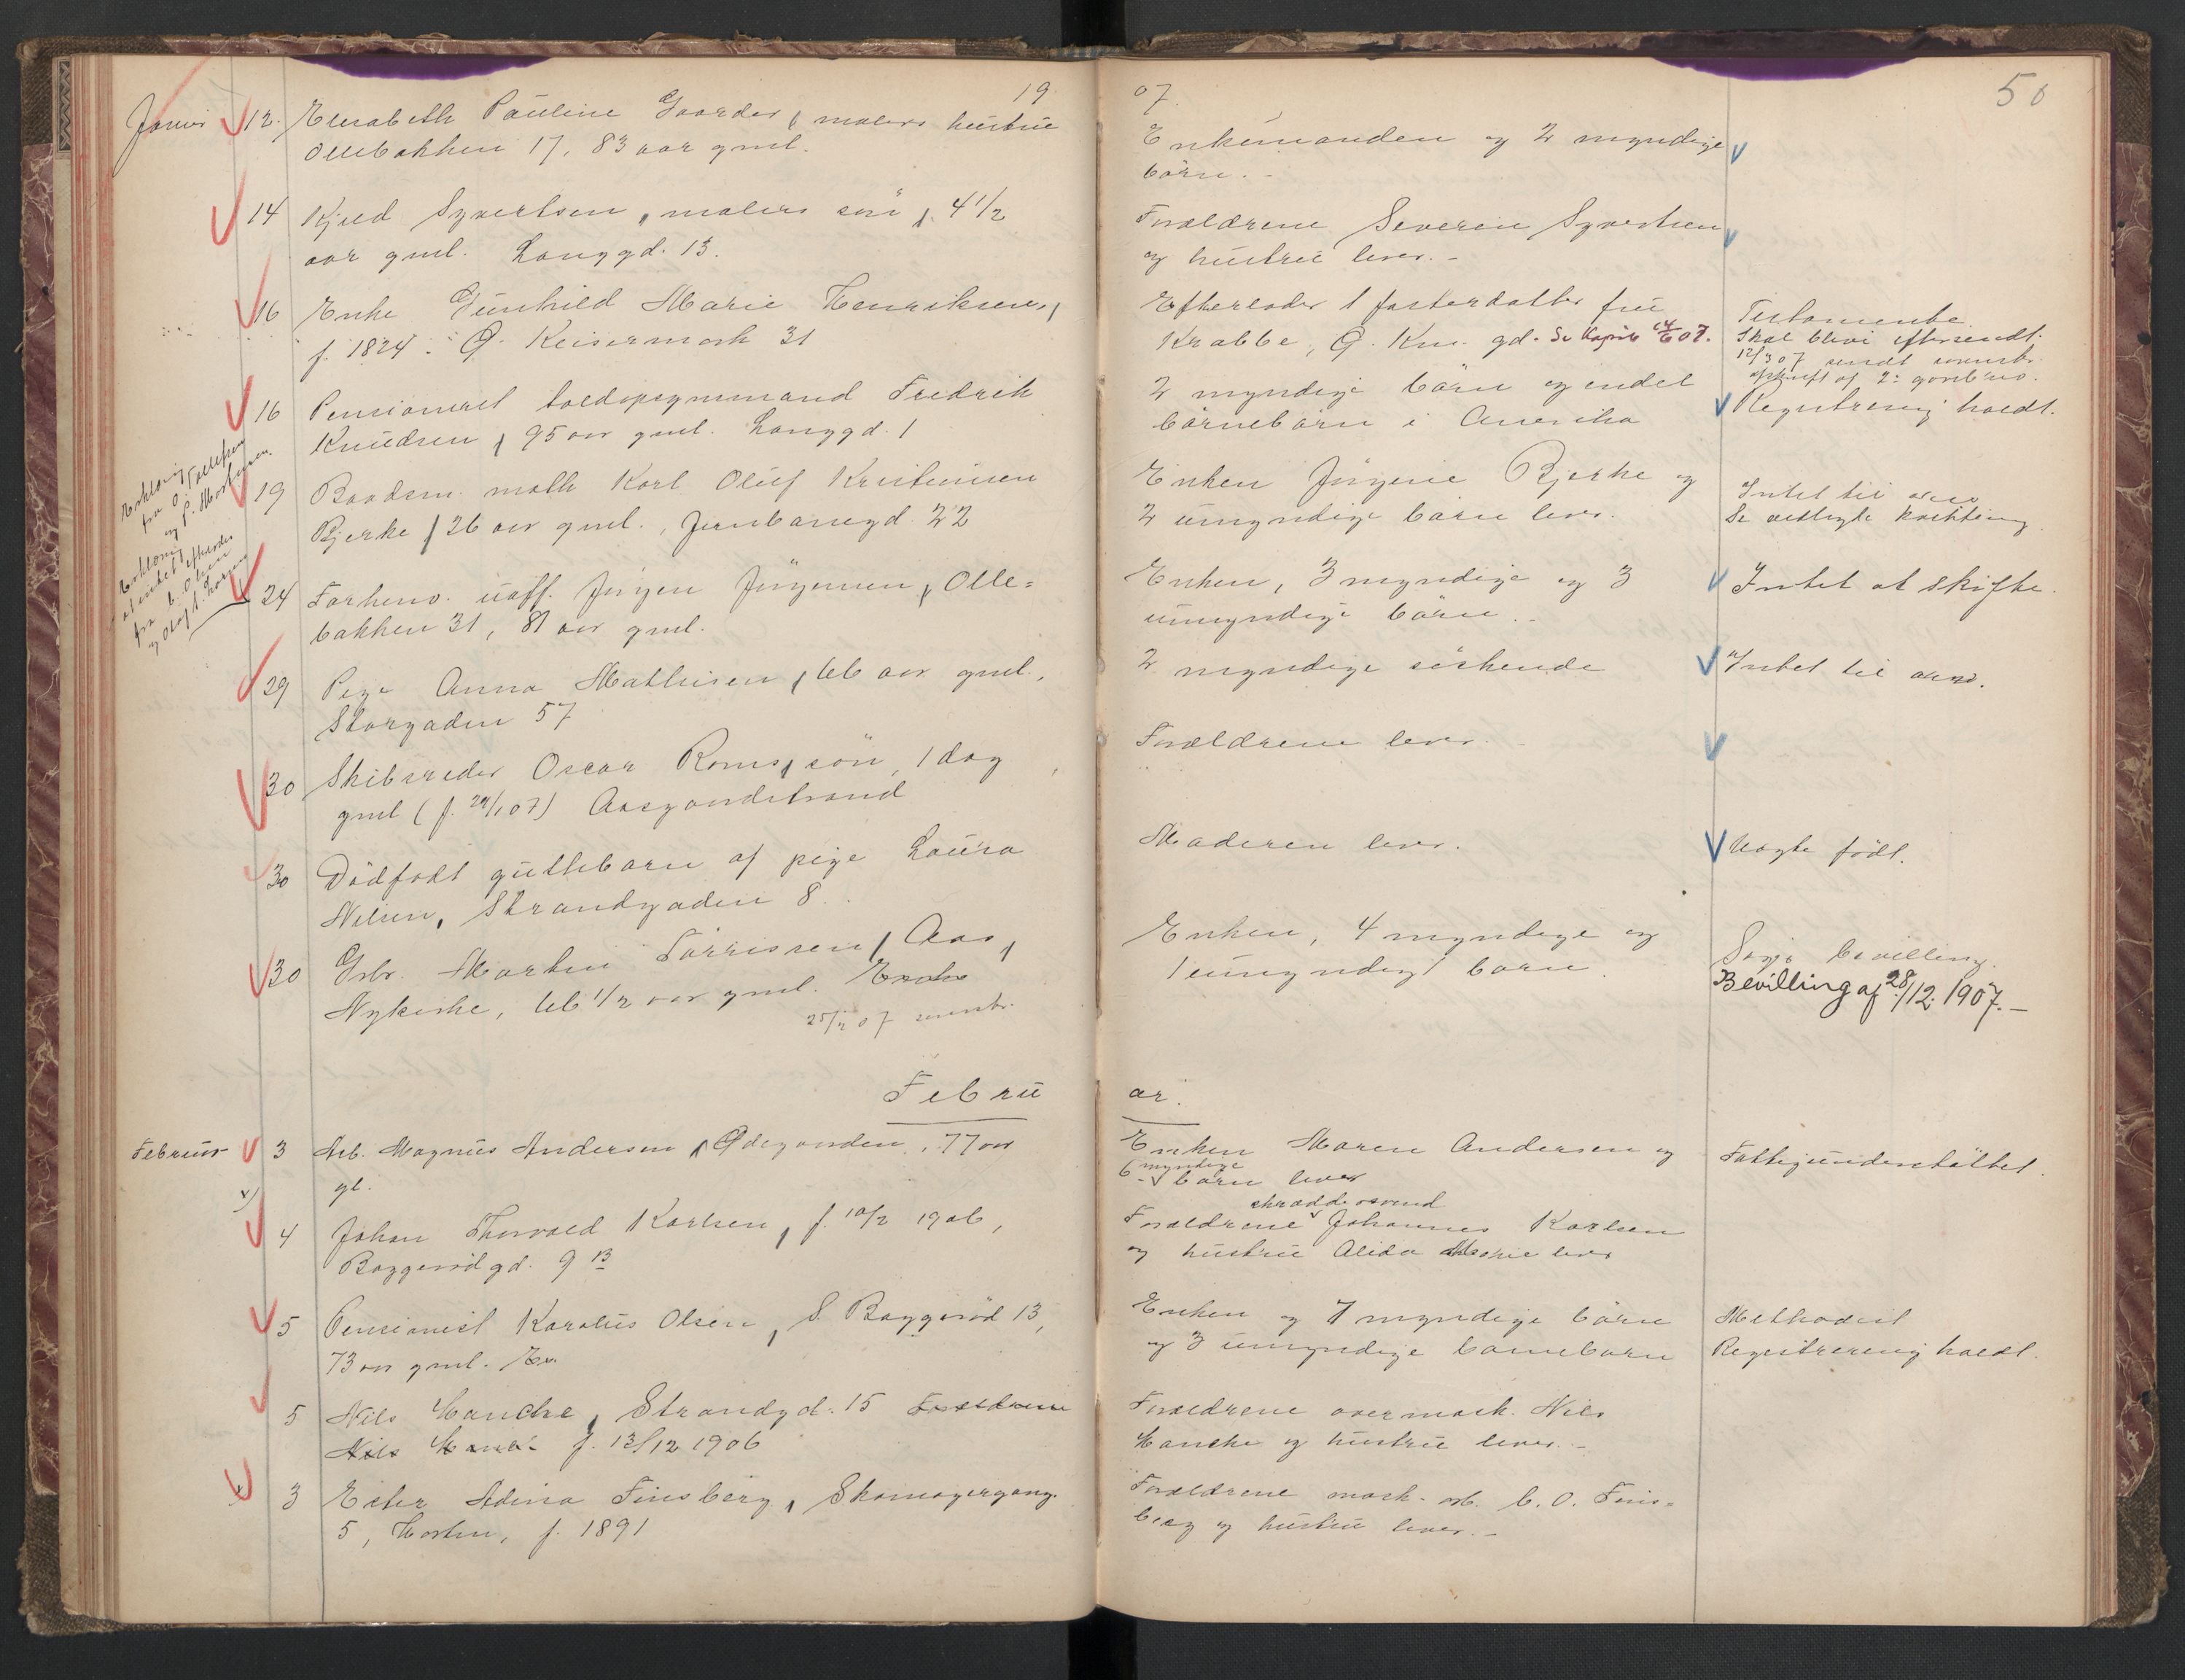 19
07.
50
Januar 12. Elisabeth Pauline Gaarder, malers hustru
Ollebakken 17, 83 aar gml.
Enkemanden og 2 myndige
børn. -
14 Kjell Syvertsen, malers søn, 4 1/2
aar gml. Langgd. 13.
Forældrene Severin Syvertsen
og hustru lever. -
16 Enke Gunhild Marie Henriksen,
f. 1824. Ø. Keisermark 31
Efterlader 1 fosterdatter fru
Krabbe, Ø. Km. gd. Se 07.
Testamente
Skal blive eftersendt.
12/3 07 sendt
afskrift af
16 Pensioneret toldopsynsmand Fredrik
Knudsen, 95 aar gml. Langgd. 1
2 myndige børn og endel
børnebørn i Amerika
Registrering holdt.
Erklæring
fra O. Tollefsen
og P. Mortensen.
19 Baadsm. math Karl Oluf Kristiansen
Bjerke, 26 aar gml., Jernbanegd. 22
Enken Jørgine Bjerke og
2 umyndige børn lever.
Intet til arv
Se vedlagte erklæring
Erklæring
fra C. Olsen
24 Forhenv. uoff. Jørgen Jørgensen, Olle=
bakken 31, 81 aar gml.
Enken, 3 myndige og 3
umyndige børn. -
Intet at skifte.
29 Pige Anna Mathisen, 66 aar gml.,
Storgaden 57
2 myndige søskende
Intet til arv.
30 Skibsreder Oscar Roms, søn, 1 dag
gml (f. 29/1 07) Aasgaardstrand
Forældrene lever. -
30 Dødfødt guttebarn af pige Laura
Nilsen, Strandgaden 8.
Moderen lever.
Uægte født.
30 Grbr. Martin Tørrissen, Aas,
Nykirke, 66 1/2 aar gml. Enke
25/2 07
Enken, 4 myndige og
1 umyndigt barn.
Søgt bevilling.
Bevilling af 28/12. 1907. -
Febru
ar.
Februar 3 Arb. Magnus Andersen, Ødegaarden, 77 aar
gl.
Enken Maren Andersen og
6 myndige børn lever
Fattigunderstøttet.
4 Johan Thorvald Karlsen, f. 10/2 1906,
Baggerød gd. 9 B
Forældrene skræddersvend Johannes Karlsen
og hustru Alida Marie lever
5 Pensionist Karolus Olsen, S. Baggerød 13,
73 aar gml. En
Enken og 7 myndige børn
og 3 umyndige barnebarn
Methodist
Registrering holdt.
5 Nils Hanche, Strandgd. 15 Forældrene
Nils Hanc f. 13/12 1906
Forældrene overmask. Nils
Hanche og hustru lever. -
3 Ester Adina Finsberg, Skomagergang.
5, Horten, f. 1891
Forældrene mask. arb. C. O. Fins=
berg og hustru lever. -